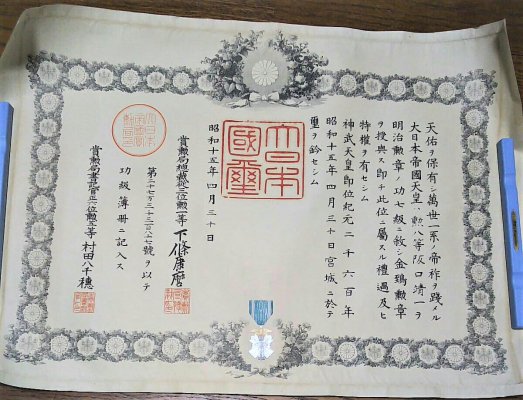 天佑ヲ保有シ萬世一系ノ帝祚ヲ踐メル
大日本帝國天皇ハ勲八等阪口清一ヲ
明治勲章ノ功七級ニ敘シ金鵄勲章
ヲ授與ス即チ此位ニ屬スル禮遇及ヒ
特權ヲ有セシム
神武天皇即位紀元二千六百年
昭和十五年四月三十日宮城ニ於テ
璽ヲ鈐セシム
大日本
國璽
昭和十五年四月三十日
賞勲局總裁從三位勲一等下條康麿
第二十七万三千三百八十七號ヲ以テ
功級簿冊ニ記入ス
賞勲局書記官正六位勲五等村田八千穗